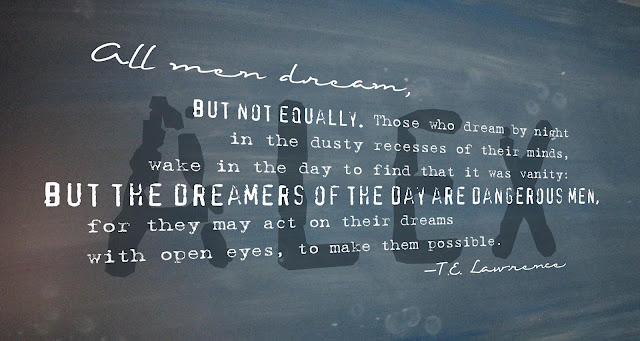 All men dream,
BUT NOT EQUALLY. Those who dream by night
in the dusty recesses of their minds,
wake in the day to find that it was vanity:
BUT THE DREAMERS OF THE DAY ARE DANGEROUS MEN,
for they may act on their dreams
with open eyes, to make them possible.
—T.E. Lawrence
ALEX